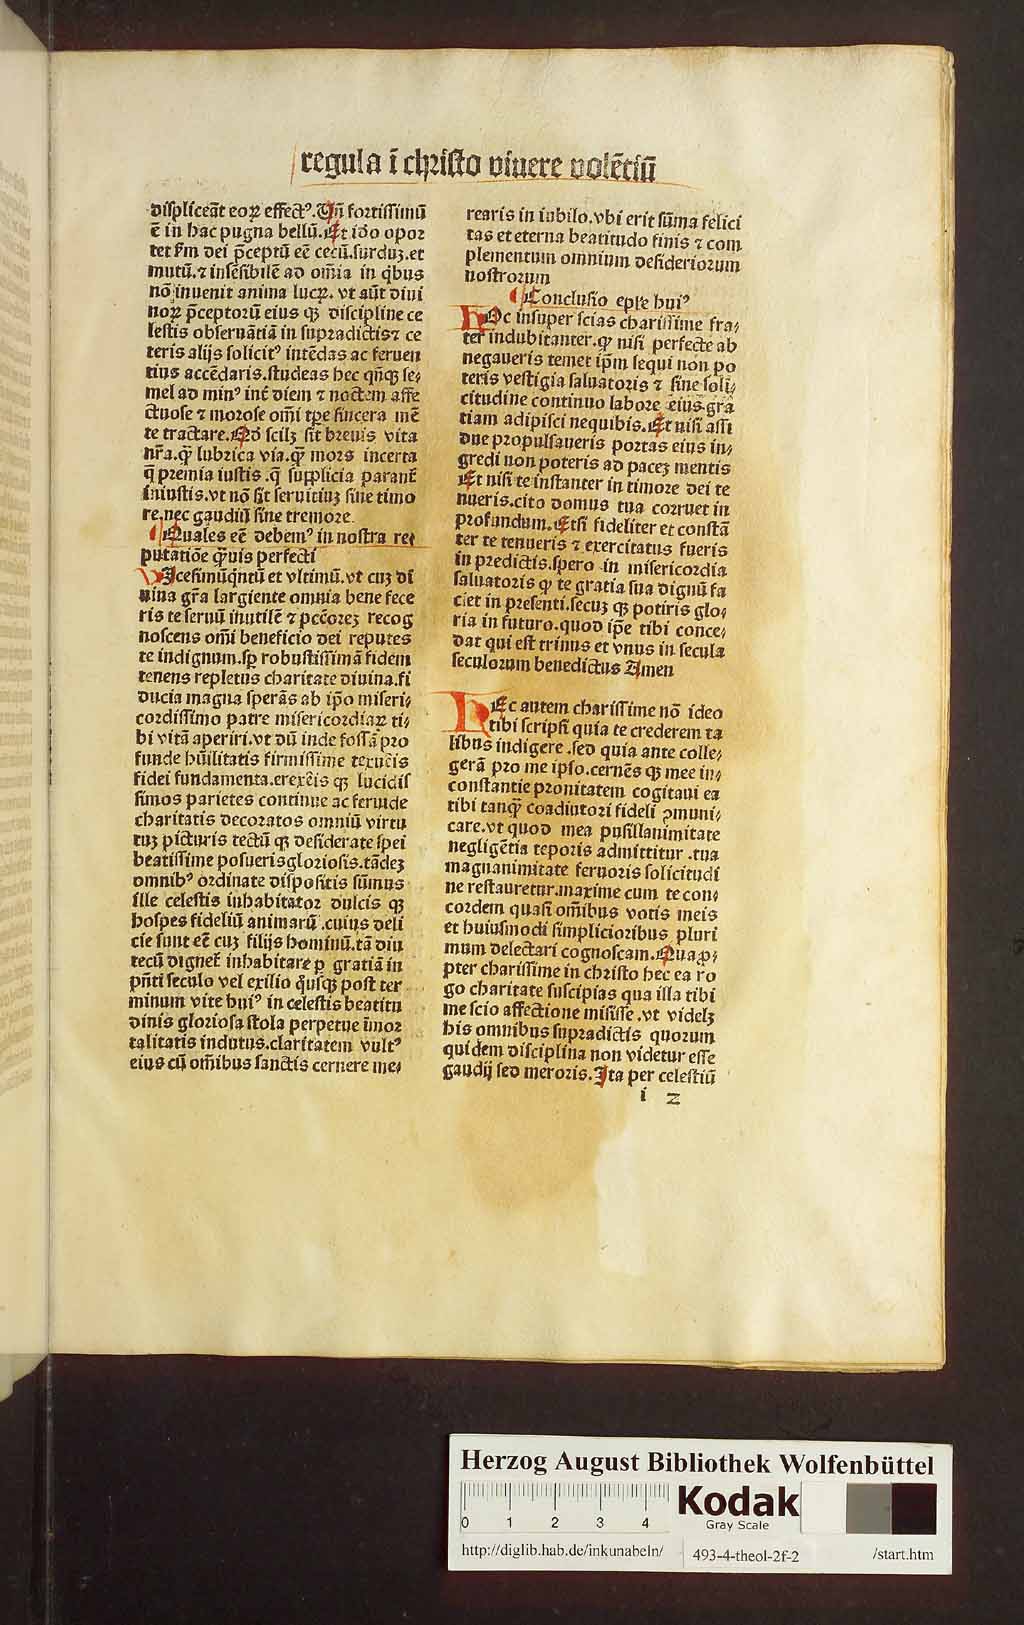 regula ī christo viuere volētiū
displiceāt eoꝝ effectꝰ. Vn̄ fortissimū
ē in hac pugna bellū. Et iō opor
tet ẜm dei p̄ceptū eē cecū. surduꝫ. et
mutū. ⁊ insēsibilē ad om̄ia in q̇bus
nō inuenit anima lucꝝ. vt aūt diui
noꝝ p̄ceptorū eius qꝫ discipline ce
lestis obseruātiā in supradictis ⁊ ce
teris alijs solicitꝰ intēdas ac feruen
tius accēdaris. studeas hec qn̄qꝫ se⸗
mel ad minꝰ int̄ diem ⁊ noctem affe
ctuose ⁊ morose om̄i tp̄e sincera mē
te tractare. Qd̓ scilꝫ sit breuis vita
nr̄a. ꝙ̄ lubrica via. ꝙ̄ mors incerta
q̄ premia iustis. q̄ supplicia parant̄
iniustis. vt nō sit seruitiuꝫ sine timo
re. nec gaudiū sine tremore.
¶ Quales eē debemꝰ in nostra re⸗
putatiōe ꝙ̄uis perfecti
VIcesimūqn̄tū et vltimū. vt cuꝫ di
uina gr̄a largiente omnia bene fece
ris te seruū inutilē ⁊ pcc̄oreꝫ recog
noscens om̄i beneficio dei reputes
te indignum. sꝫ robustissimā fidem
tenens repletus charitate diuina. fi
ducia magna sperās ab ip̄o miseri⸗
cordissimo patre misericordiaꝝ ti⸗
bi vitā aperiri. vt dū inde fossā pro
funde hūilitatis firmissime texueīs
fidei fundamenta. erexeīs qꝫ lucidis
simos parietes continue ac feruide
charitatis decoratos omniū virtu
tuꝫ picturis tectū qꝫ desiderate spei
beatissime posueris gloriosis. tādeꝫ
omnibꝰ ordinate dispositis sūmus
ille celestis inhabitator dulcis qꝫ
hospes fideliū animarū. cuius deli
cie sunt eē cuꝫ filijs hominū. tā diu
tecū dignet̄ inhabitare ꝑ gratiā in
pn̄ti seculo vel exilio q̇usqꝫ post ter
minum vite huiꝰ in celestis beatitu
dinis gloriosa stola perpetue īmor
talitatis indutus. claritatem vultꝰ
eius cū om̄ibus sanctis cernere me⸗
rearis in iubilo. vbi erit sūma felici
tas et eterna beatitudo finis ⁊ com
plementum omnium desideriorum
nostrorum
¶ Conclusio epl̄e huiꝰ
HOc insuper scias charissime fra⸗
ter indubitanter. ꝙ nisi perfecte ab
negaueris temet ip̄m sequi non po
teris vestigia saluatoris ⁊ sine soli⸗
citudine continuo labore eius grā
tiam adipisci nequibis. Et nisi assi
due propulsaueris portas eius in⸗
gredi non poteris ad paceꝫ mentis
Et nisi te instanter in timore dei te
nueris. cito domus tua corruet in
profundum. Etsi fideliter et constā
ter te tenueris ⁊ exercitatus fueris
in predictis. spero in misericordia
saluatoris ꝙ te gratia sua dignū fa
ciet in presenti. secuꝫ qꝫ potiris glo⸗
ria in futuro. quod ip̄e tibi conce⸗
dat qui est trinus et vnus in secula
seculorum benedictus Amen
HEc autem charissime nō ideo
tibi scripsi quia te crederem ta
libus indigere. sed quia ante colle⸗
gerā pro me ipso. cernēs qꝫ mee in⸗
constantie pronitatem cogitaui ea
tibi tanqꝫ̄ coadiutori fideli ꝯmuni⸗
care. vt quod mea pusillanimitate
negligētia teporis admittitur. tua
magnanimitate feruoris solicitudi
ne restauretur. maxime cum te con⸗
cordem quasi om̄ibus votis meis
et huiusmodi simplicioribus pluri
mum delectari cognoscam. Quaꝓ⸗
pter charissime in christo hec ea ro
go charitate suscipias qua illa tibi
me scio affectione misisse. vt videlꝫ
his omnibus supradictis quorum
quidem disciplina non videtur esse
gaudij sed meroris. Ita per celestiū
i 2
Herzog August Bibliothek Wolfenbüttel
0 1 2 3 4
Kodak
Gray Scale
http://diglib.hab.de/inkunabeln/ 493-4-theol-2f-2 /start.htm